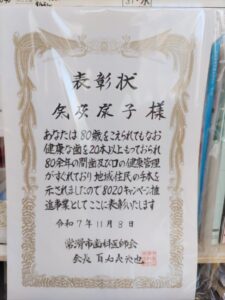 表彰状
子 様
あなたは80歳をこえられてもなお
健康な歯を20本以上もっておられ
80余年の間歯及び口の健康管理
がすぐれており地域住民の手本を
示されましたので8020キャンペーン推
進事業としてここに表彰いたします
令和7年11月8日
常滑市歯科医師会
会長